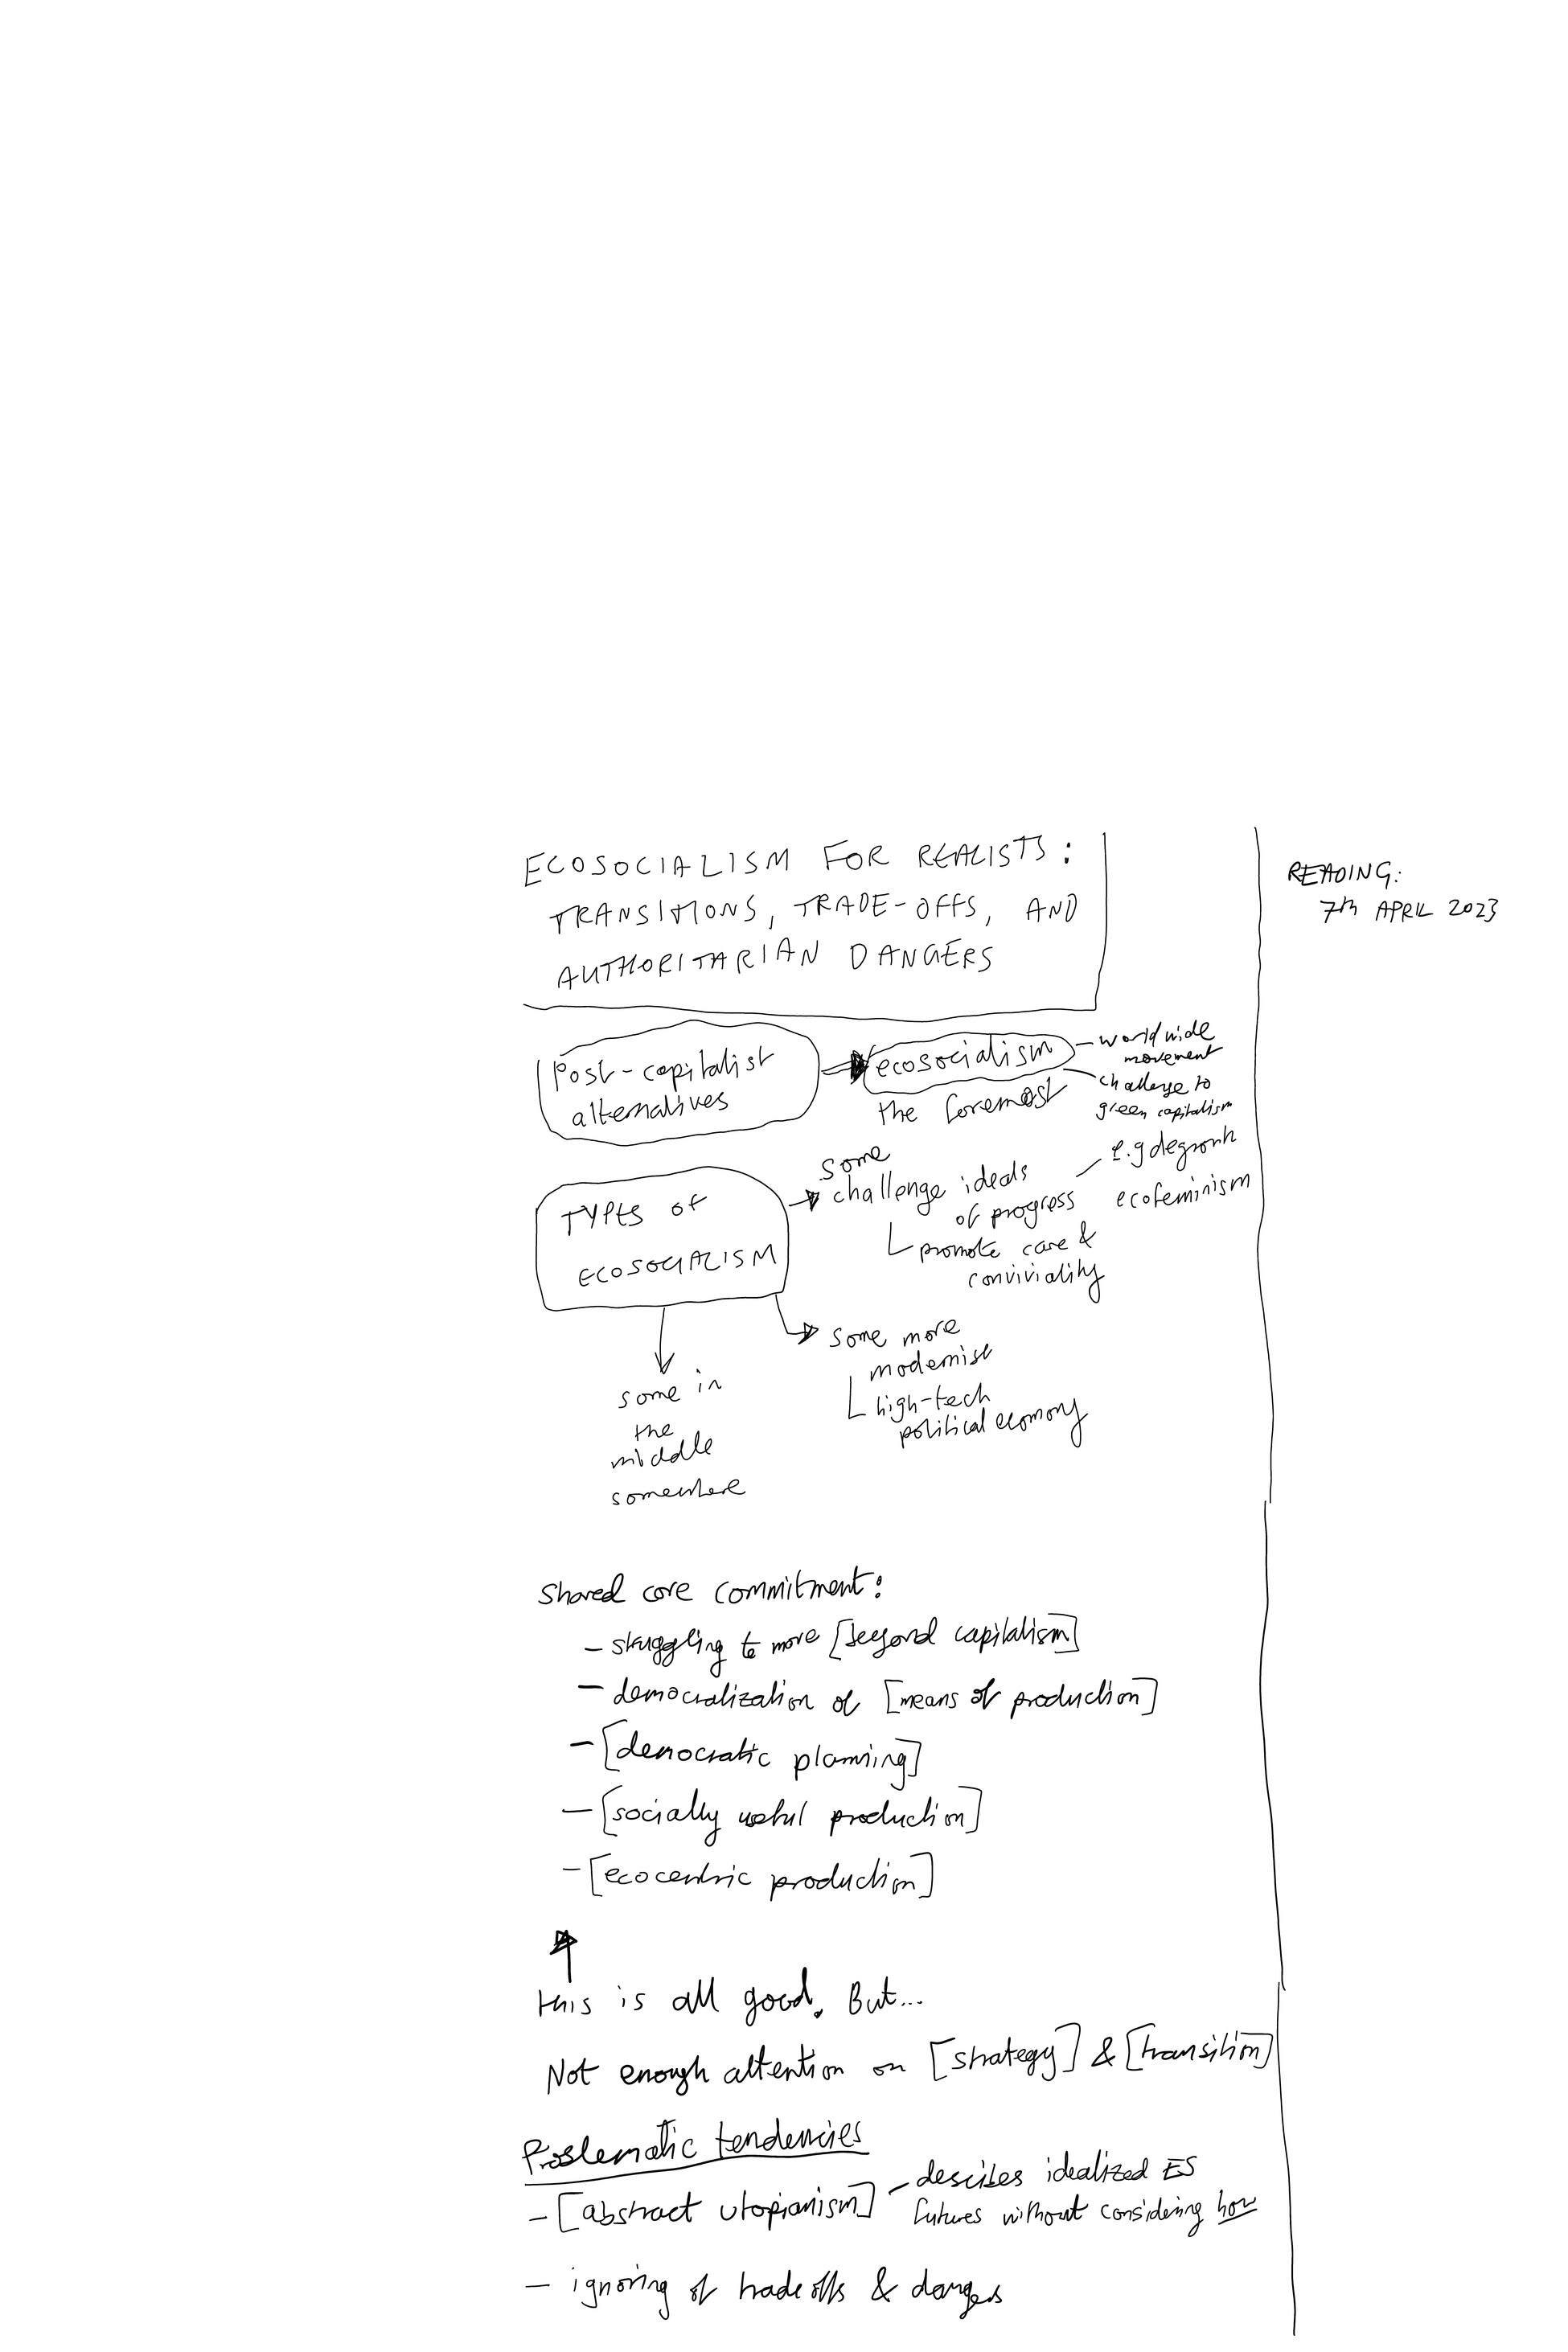 ECOSOCIALISM FOR REALISTS:
TRANSITIONS, TRADE-OFFS, AND
AUTHORITARIAN DANGERS
READING:
7th APRIL 2023
Post-capitalist
alternatives
ecosocialism
the foremost
- worldwide
movement
challenge to
green capitalism
TYPES OF
ECOSOCIALISM
some
challenge ideals
of progress
e.g degrowth
ecofeminism
promote care &
conviviality
some more
modernist
high-tech
political economy
some in
the
middle
somewhere
Shared core commitment:
- struggling to move [beyond capitalism]
- democratization of [means of production]
- [democratic planning]
- [socially useful production]
- [ecocentric production]
this is all good. But...
Not enough attention on [strategy] & [transition]
Problematic tendencies
- [abstract utopianism]
- describes idealized ES
futures without considering how
- ignoring of trade offs & dangers